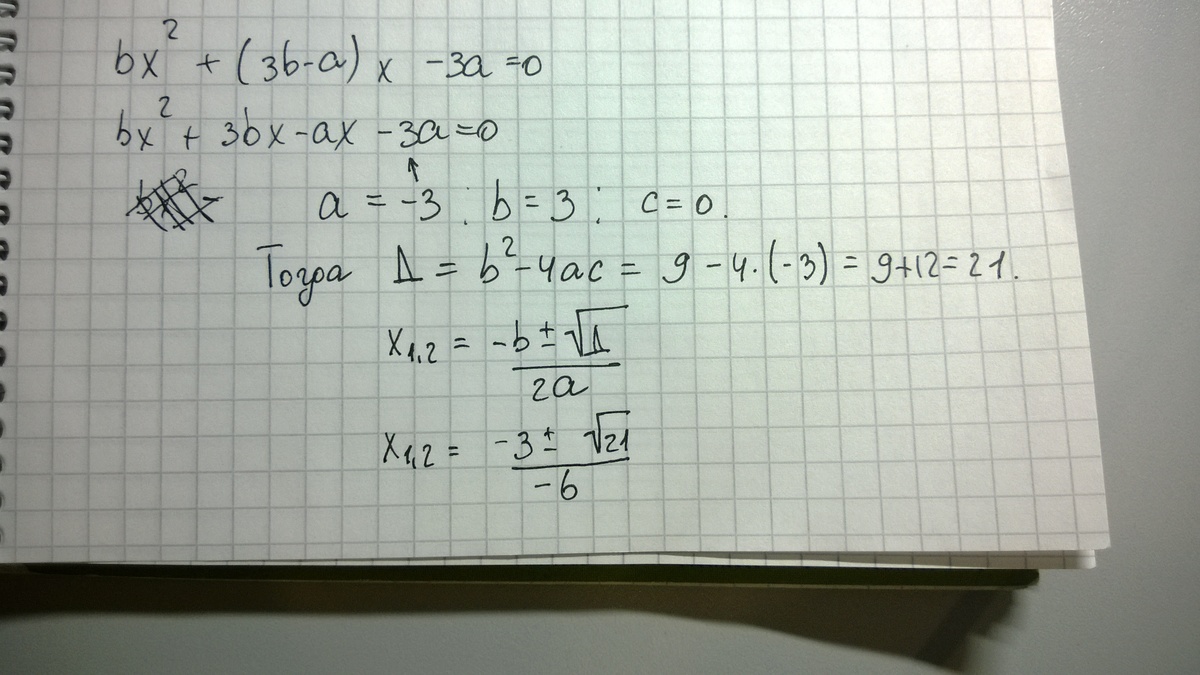 bx² + (3b-a) x -3a =0
bx² + 3bx-ax -3a=0
↑
a = -3 ; b = 3 ; c = 0.
Тогда Д = b²-4ac = 9 - 4·(-3) = 9+12=21.
x₁,₂ = -b ± √Д / 2a
x₁,₂ = -3 ± √21 / -6